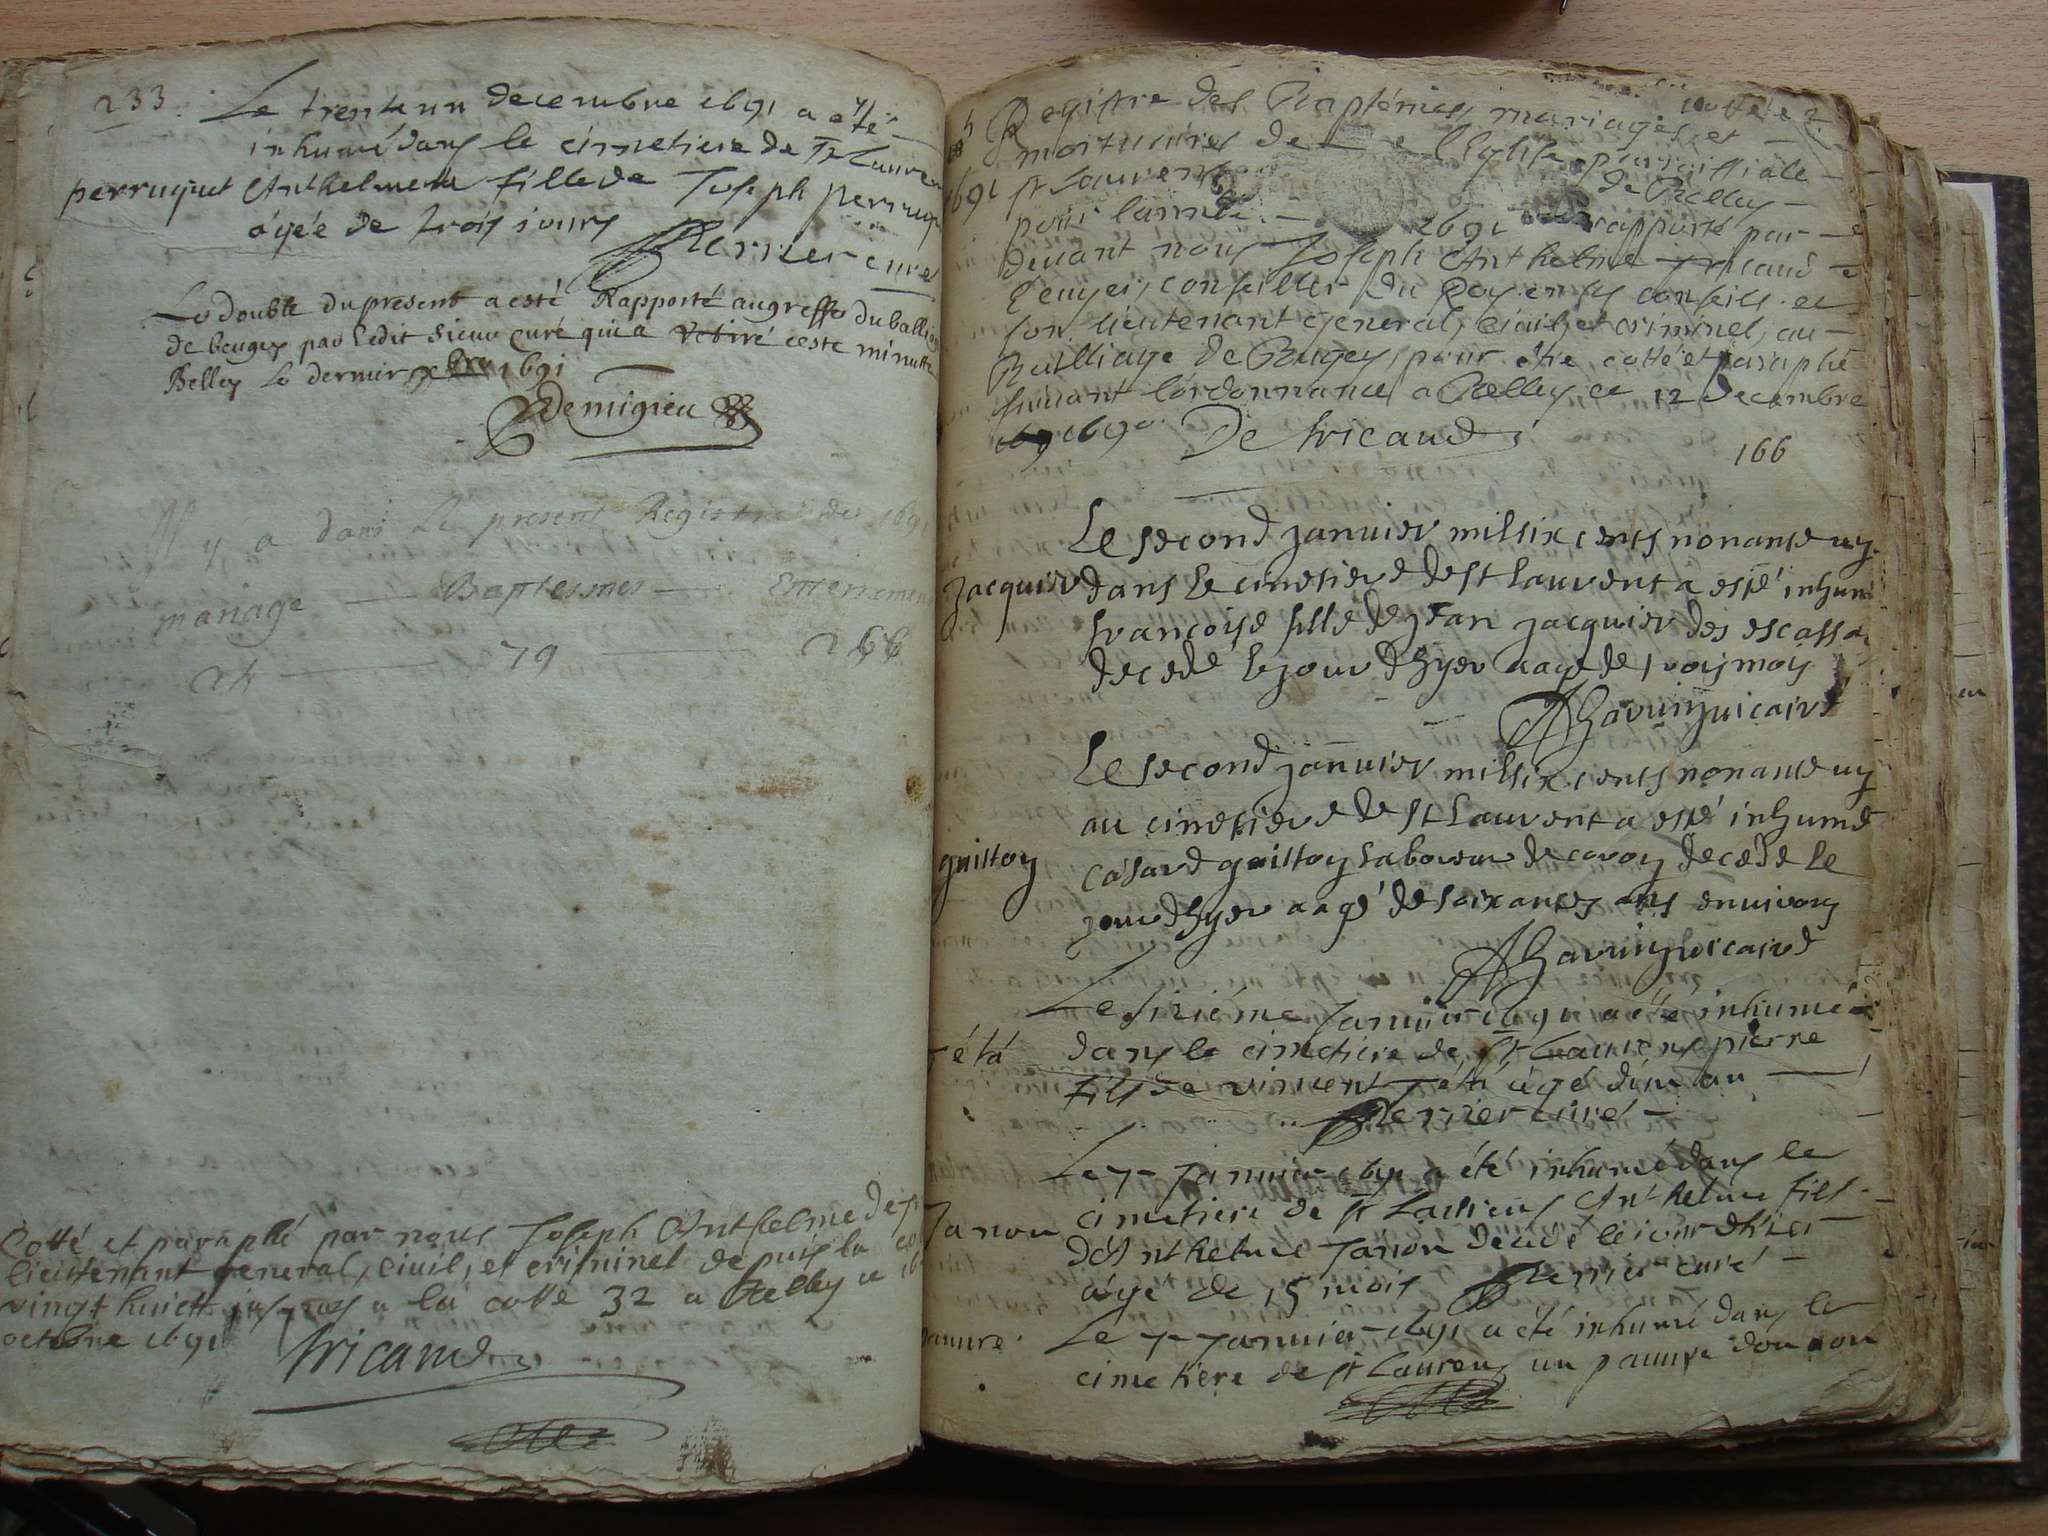 233
Le trentunn decembre 1691 a été
inhumé dans le cimetiere de St Lauren
perruquet Anthelmeta fille de Joseph perruq
agée de trois iours
Perrier curé
Le double du present a esté Rapporté au greffe du balliage
de beugey par ledit sieur curé qui a Retiré ceste minutte
Belley le dernier xbre 1691
Demigieu
Il y a dans Le present Registre de 1691
mariage — Baptesmes — Enterremen
24 — 79 — 266
Cotté et paraphé par nous Joseph Anthelme de
lieutenant general, civil, et criminel depuis la
vingt huict jusques a la cotte 32 a Belley ce
octobre 1691
tricaud
cottée 2
Registre des Baptémes, mariages, et
mortuaires de L'Eglise parroissiale
1691 st Laurent de Belley
pour l'année 1691 rapporté par
devant nous Joseph Anthelme tricaud
Ecuyer, conseiller du Roy en ses conseils et
son lieutenant general, civil, et criminel, au
Bailliage de Beugey, pour être cotté et paraphé
suivant l'ordonnance a Belley ce 12 decembre
1690 De tricaud
166
Le second janvier mil six cents nonante ung
jacquier dans le cimetiere de st laurent a esté inhumé
françoise fille de jean jacquier des escassa
decedé le jour d'hyer aagé de trois moys
vicaire
Le second janvier mil six cents nonante ung
au cimetiere de st laurent a esté inhumé
guilloy césard guilloy laboureur de coron decede le
jour d'hyer aagé de soixantes ans environ
vicaire
Le sixiéme Janvier 1691 a été inhumé
tétá dans le cimetiere de st Laurens pierre
fils de vincent tétá agé dun an
Perrier curé
Le 7 Janvier 1691 a été inhumé dans le
cimetiere de st Laurens Anthelme fils
Janon d'Anthelme Janon decedé le iour d'hier
agé de 15 mois Perrier curé
pauure Le 7 Janvier 1691 a été inhumé dans le
cimetiere de st Laurens un pauure dont on